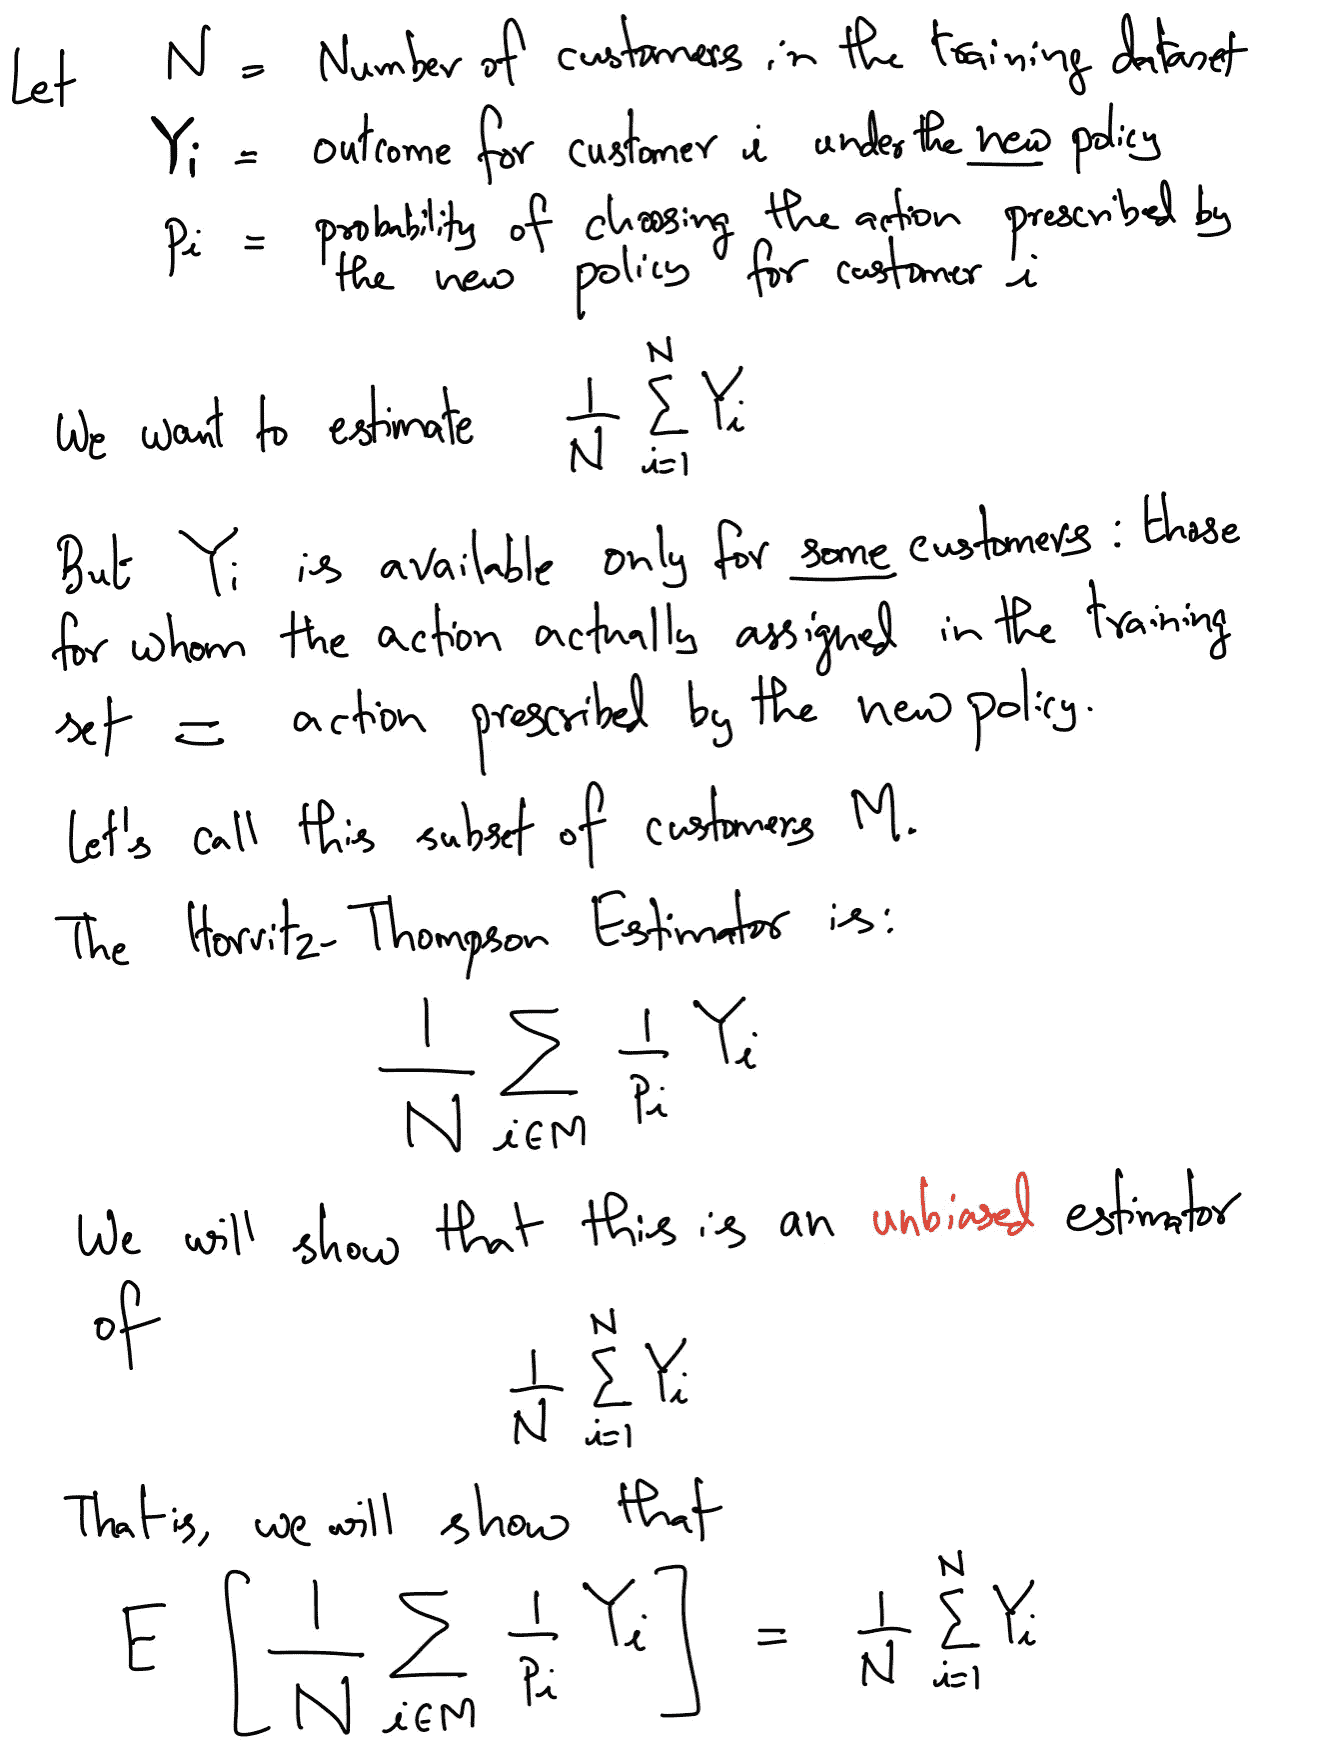 Let N = Number of customers in the training dataset
Yi = outcome for customer i under the new policy
Pi = probability of choosing the action prescribed by
the new policy for customer i
We want to estimate 1/N ∑_{i=1}^{N} Yi
But Yi is available only for some customers : those
for whom the action actually assigned in the training
set = action prescribed by the new policy.
Let's call this subset of customers M.
The Horvitz-Thompson Estimator is:
1/N ∑_{i∈M} 1/Pi Yi
We will show that this is an unbiased estimator
of
1/N ∑_{i=1}^{N} Yi
That is, we will show that
E [ 1/N ∑_{i∈M} 1/Pi Yi ] = 1/N ∑_{i=1}^{N} Yi